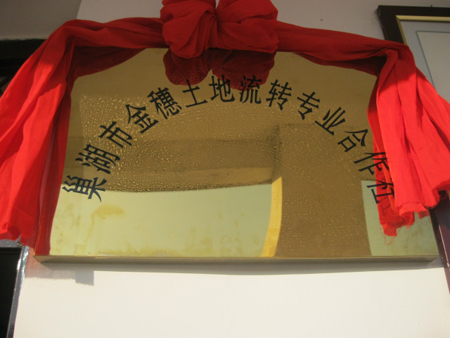 巢湖市金穗土地流转专业合作社